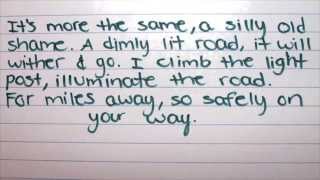 It's more the same, a silly old
shame. A dimly lit road, it will
wither & go. I climb the light
post, illuminate the road.
For miles away, so safely on
your way.